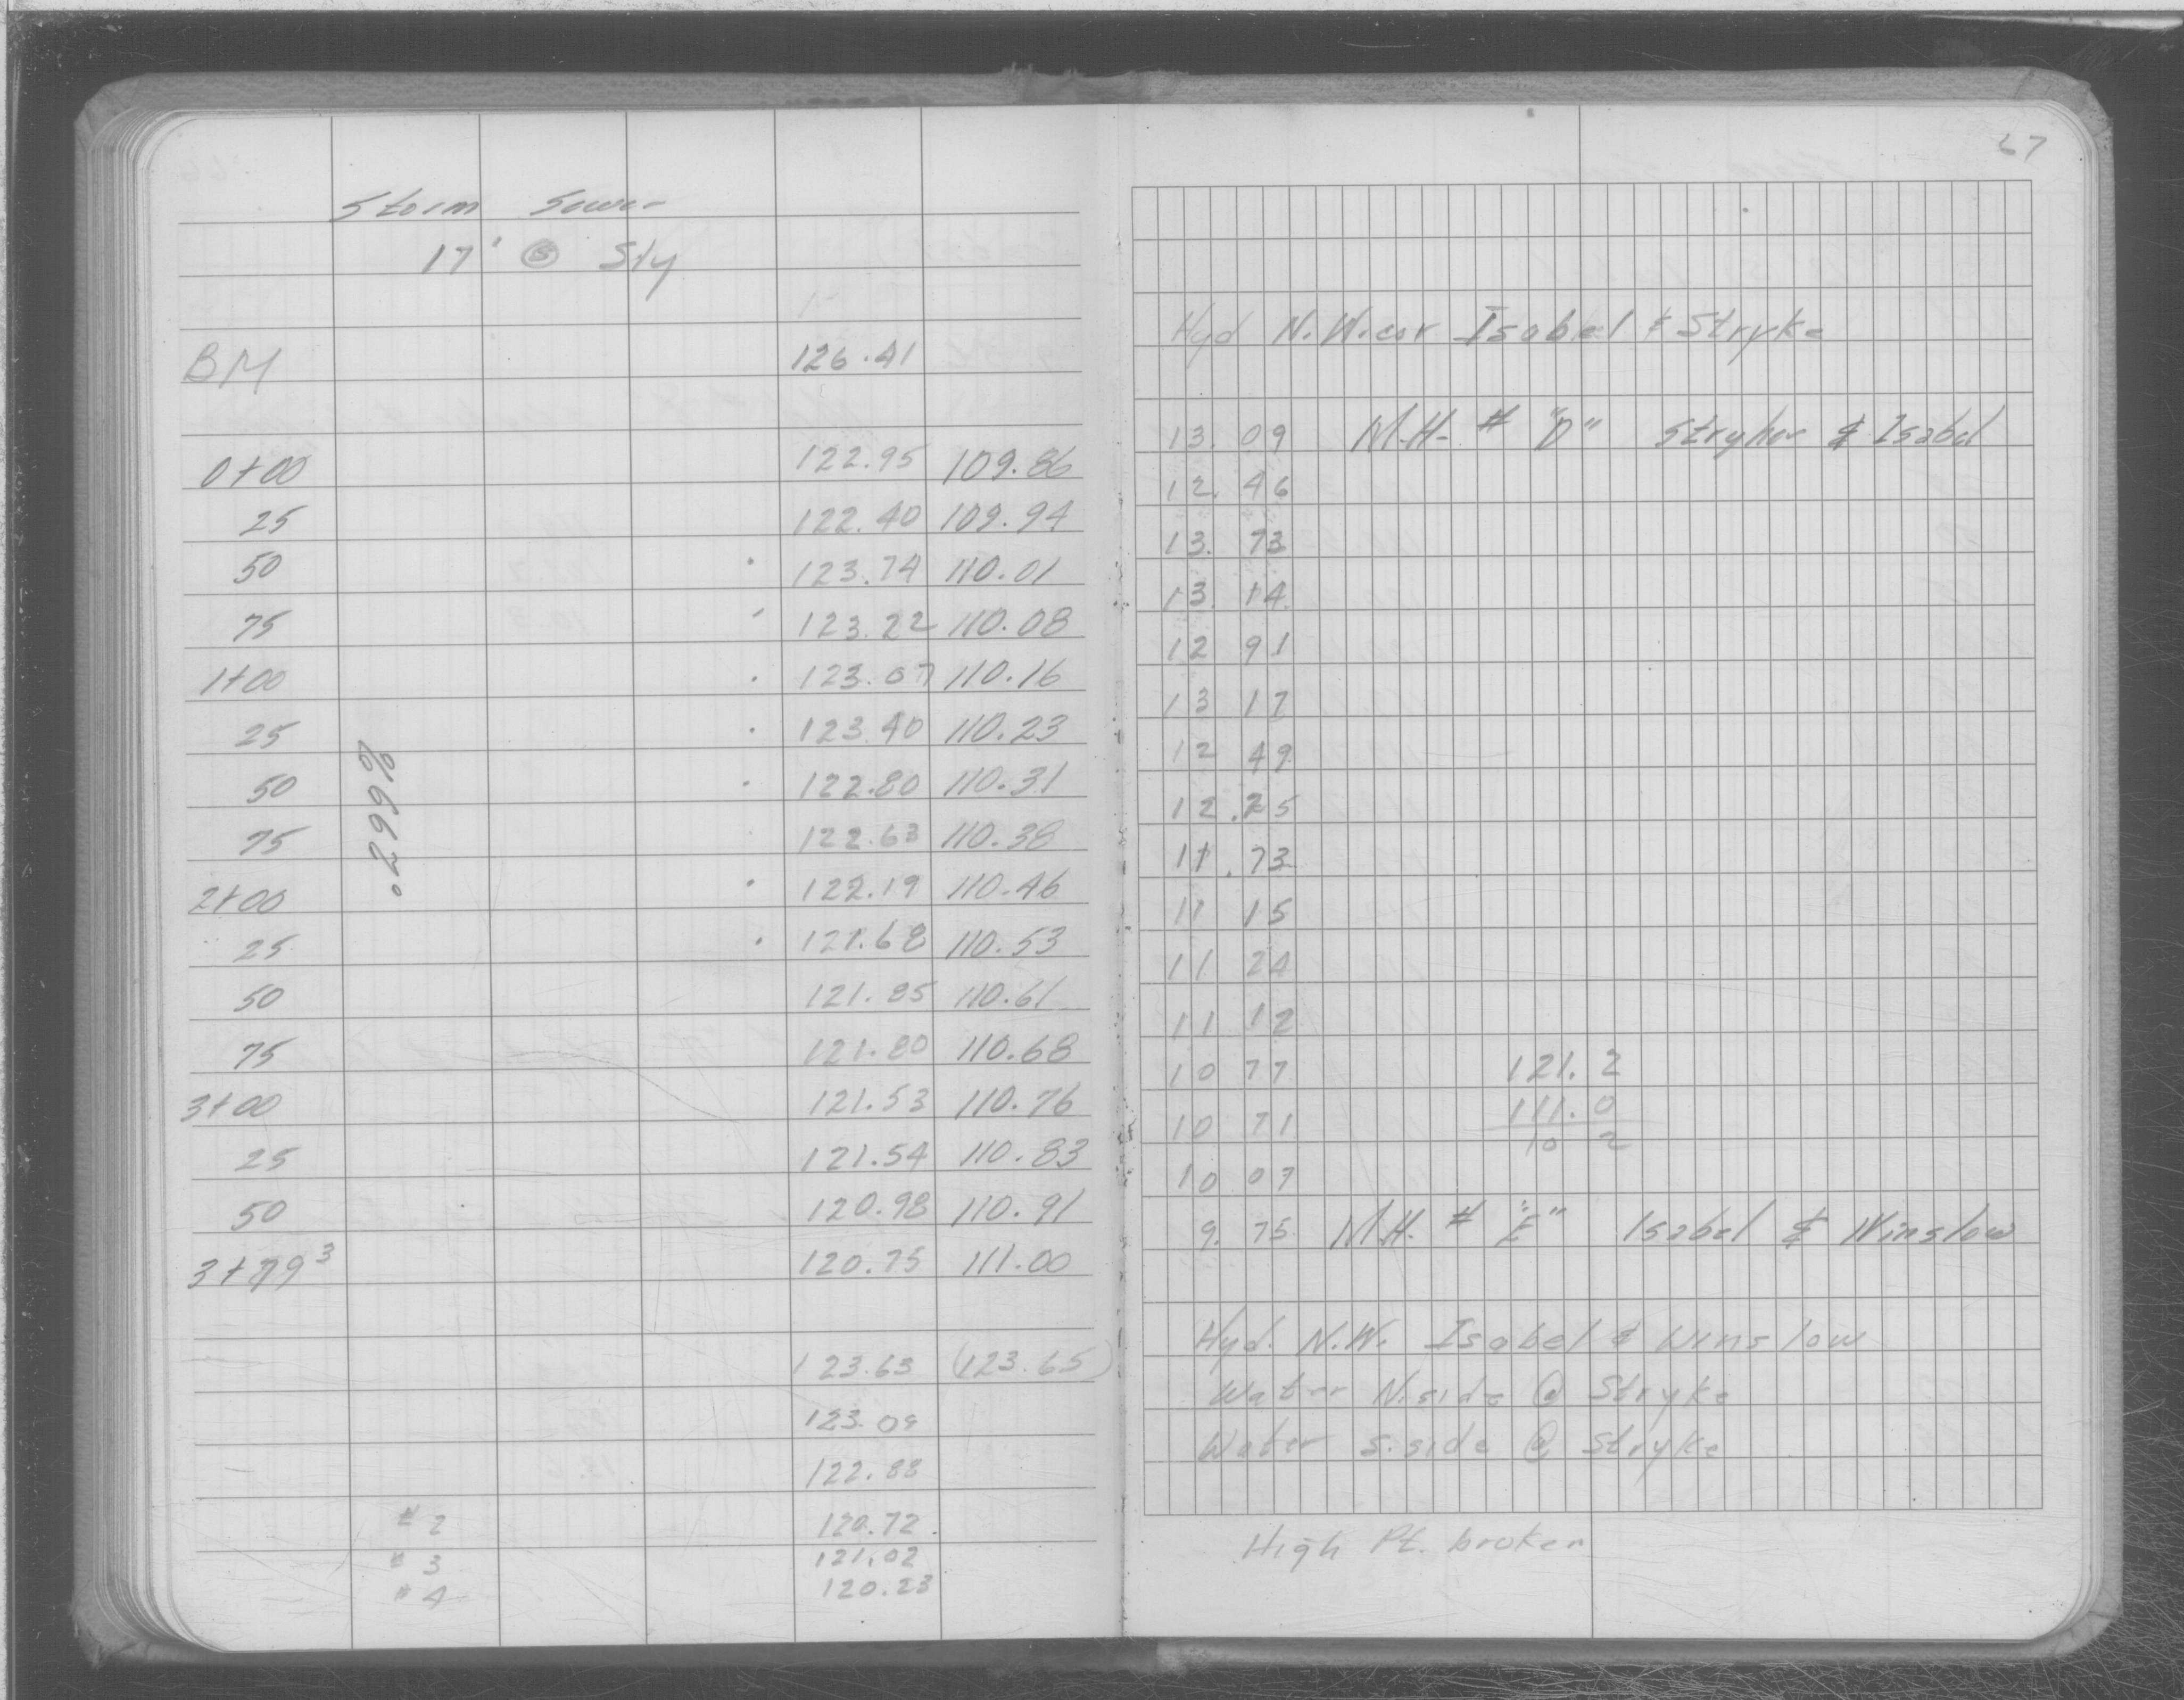 67
Storm Sewer
17' @ Sly
BM 126.41 Hyd N.W.cor Isabel & Stryke
0+00 122.95 109.86 13.09 M.H. # "D" Stryker & Isabel
25 122.40 109.94 12.46
50 123.74 110.01 13.73
75 123.22 110.08 13.14
1+00 123.07 110.16 12 91
25 123.40 110.23 13 17
50 122.80 110.31 12 49
75 122.63 110.38 12.25
2+00 122.19 110.46 11.73
25 121.68 110.53 11 15
50 121.85 110.61 11 24
75 121.80 110.68 11 12
3+00 121.53 110.76 10 77 121.2
25 121.54 110.83 10 71 111.0
10 2
50 120.98 110.91 10 07
3+79³ 120.75 111.00 9.75 M.H. # "E" Isabel & Winslow
.299%
123.63 (123.65) Hyd. N.W. Isabel & Winslow
123.09 Water N.side @ Stryke
122.88 Water S.side @ Stryke
#2 120.72 High Pt. broken
#3 121.02
#4 120.23